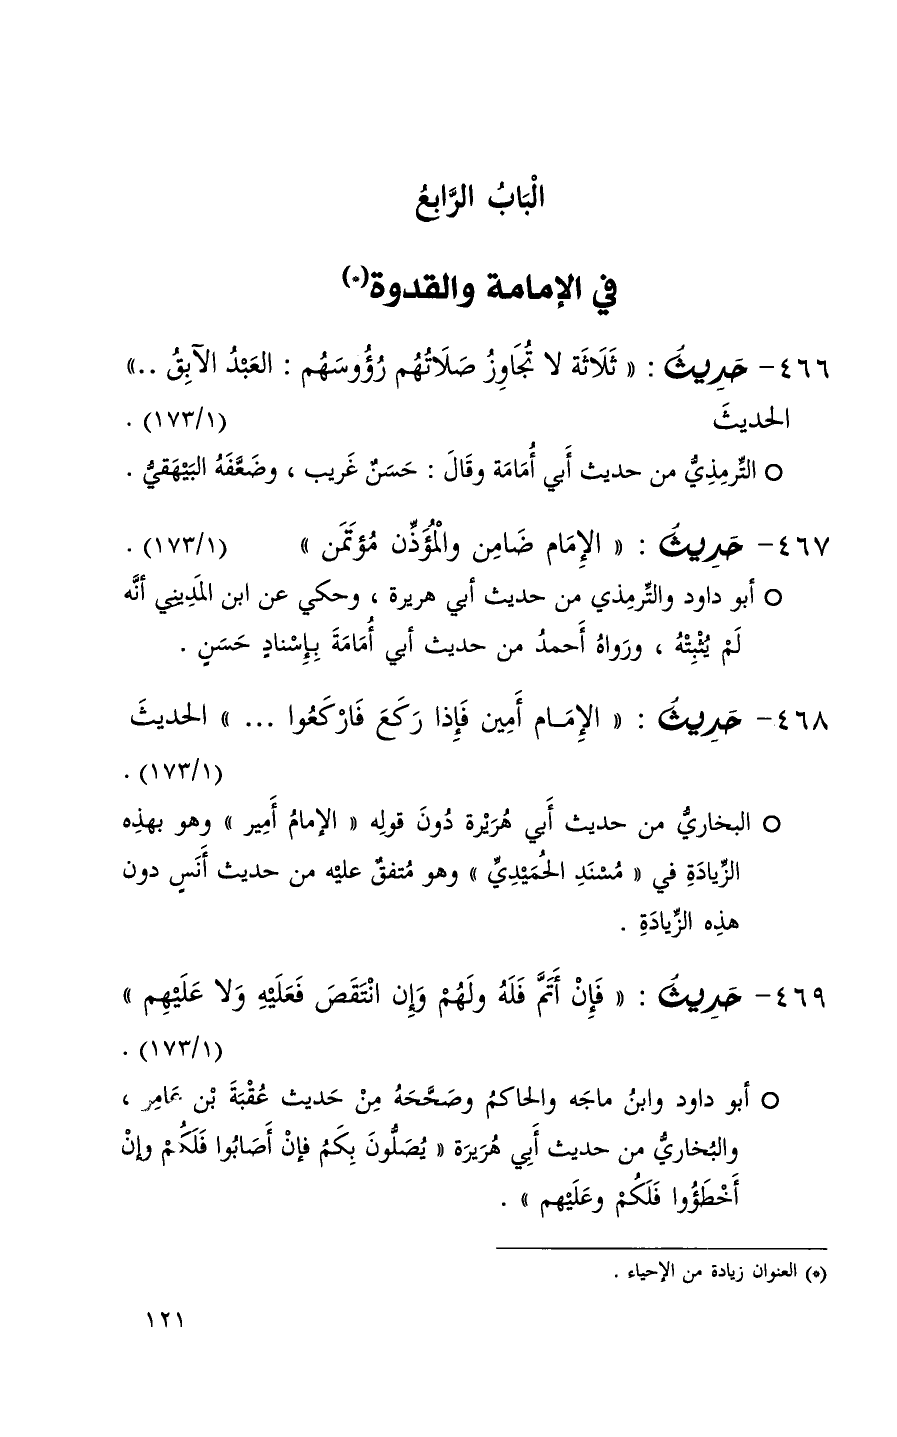 الْبَابُ الرَّابِعُ
في الإمامة والقدوة(*)
٤٦٦- حَدِيثُ : « ثَلَاثَة لا تُجَاوِزُ صَلَاتُهُم رُؤُوسَهُم : العَبْدُ الآبِقُ ..»
الحديثَ (١٧٣/١) .
○ التِّرمِذِيُّ من حديث أَبي أُمَامَة وقَالَ : حَسَنٌ غَريب ، وضَعَّفَهُ البَيْهَقيُّ .
٤٦٧- حَدِيثُ : « الإِمَام ضَامِن والْمُؤَذِّن مُؤتَمَن » (١٧٣/١) .
○ أبو داود والتِّرمِذي من حديث أبي هريرة ، وحكي عن ابن المَدِيني أنَّه
لَمْ يُثْبِتْهُ ، ورَواهُ أَحمدُ من حديث أبي أُمَامَةَ بِإِسْنادٍ حَسَنٍ .
٤٦٨- حَدِيثُ : « الإِمَـام أَمِين فَإِذا رَكَعَ فَارْكَعُوا ... » الحديثَ
(١٧٣/١) .
○ البخاريُّ من حديث أَبي هُرَيْرة دُونَ قولِه « الإمامُ أَمِير » وهو بهذِه
الزِّيادَةِ في « مُسْنَدِ الحُمَيْدِيِّ » وهو مُتفقٌ عليْه من حديث أَنَسٍ دون
هذِه الزِّيادَةِ .
٤٦٩- حَدِيثُ : « فَإِنْ أَتَمَّ فَلَهُ ولَهُمْ وَإِن انْتَقَصَ فَعَلَيْهِ وَلا عَلَيْهِم »
(١٧٣/١) .
○ أبو داود وابنُ ماجَه والحاكمُ وصَحَّحَهُ مِنْ حَديث عُقْبَةَ بْن عَامِر ،
والبُخاريُّ من حديث أَبِي هُرَيرَة « يُصَلُّونَ بِكَمُ فإنْ أَصَابُوا فَلَكُمْ وإنْ
أَخْطَؤُوا فَلَكُمْ وعَلَيْهم » .
(*) العنوان زيادة من الإحياء .
١٢١